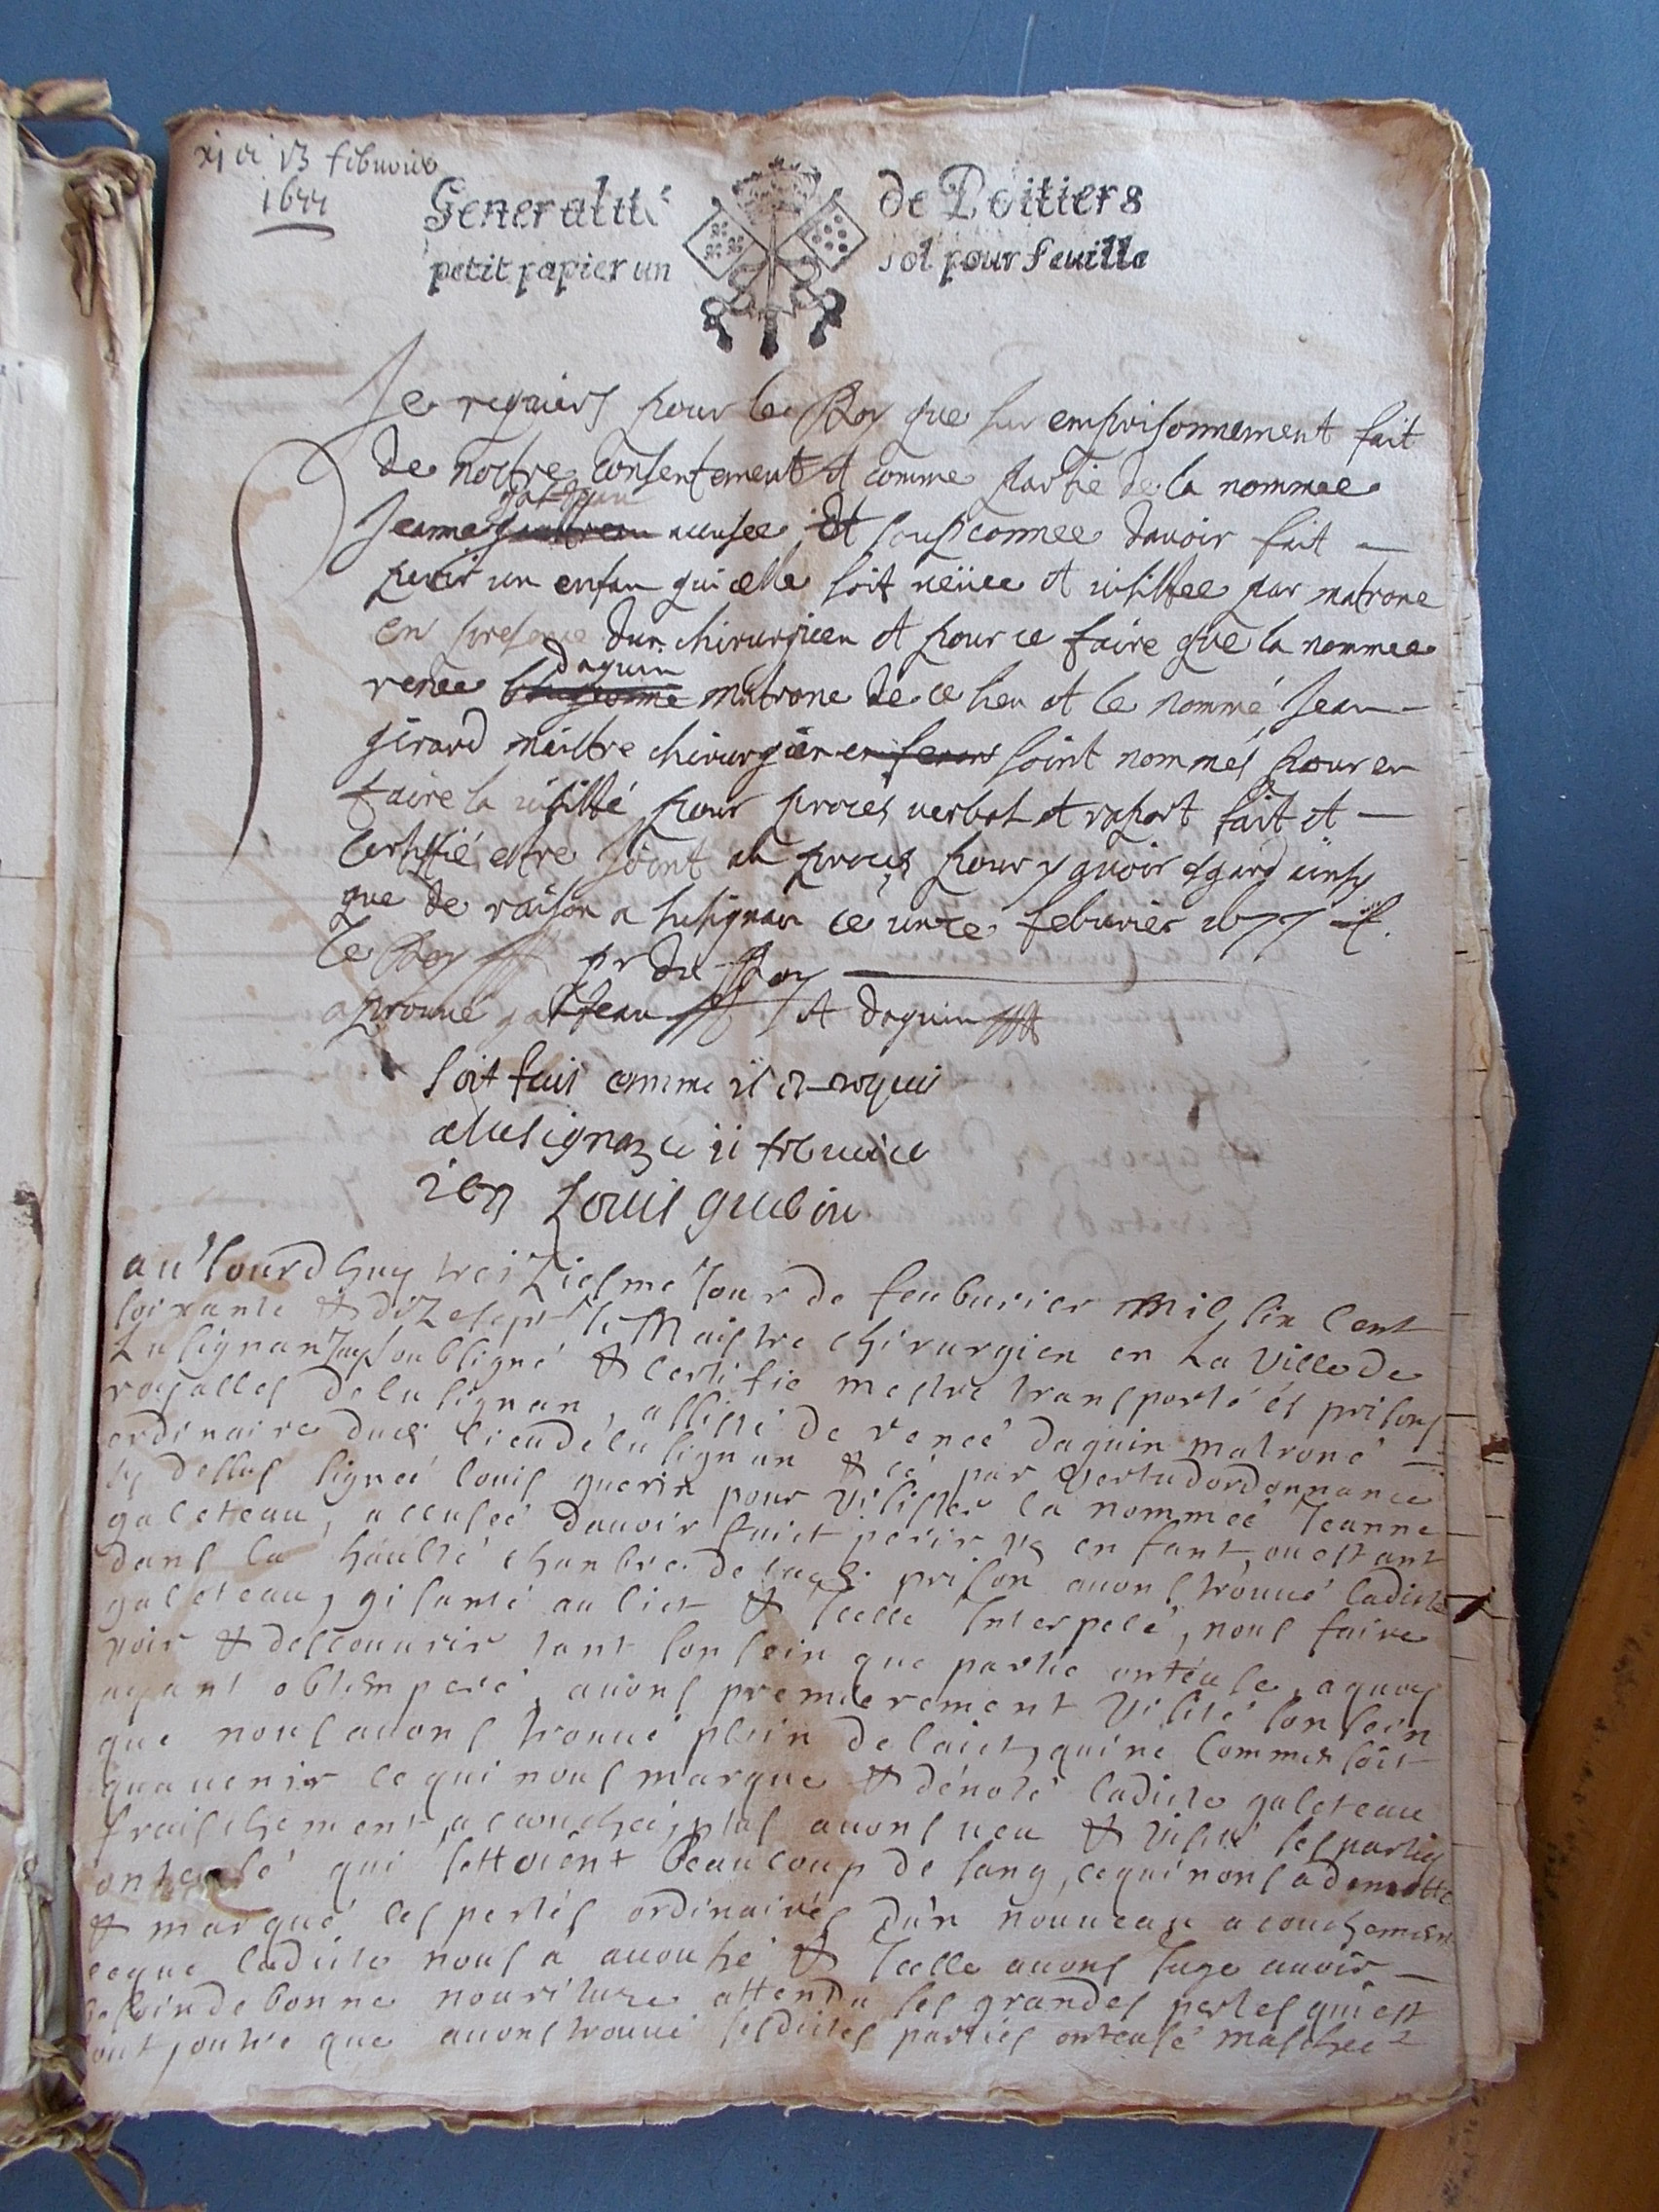 xi et 13 febvrier
1677
Generalité de Poitiers
petit papier un sol pour feuille
Je requiers pour le Roy que sur emprisonnement fait
de nostre consentement et comme partie de la nommee
galteau
Jeanne accusee et soubsconnee davoir fait
perir un enfan qui elle soit veüee et visittee par matrone
en presence dun chirurgien et pour ce faire que la nommee
daguin
renee matrone de ce lieu et le nommé Jean
girard maistre chirurgien soint nommés pour en
faire la visitté pour proces verbal et raport fait et
certiffié estre joint au proces pour y avoir esgard ainsy
que de raison a lusignan ce unze febvrier 1677
le Roy pr du Roy
aprouvé galteau et daguin
soit fait comme il est requis
a lusignan ce 11 febvrier
1677 Louis guerin
au Jourdhuy treiziesme Jour de feubvrier mil six cent
soixante & dizesept le Maistre chirurgien en la ville de
Lusignan soubsigné & certifie mestre transporté és prisons
royalles de lusignan, assisté de reneé daguin matrone
ordinaire dud lieu de lusignan & cé par vertu dordonnance
cy dessus signeé louis guerin pour visister la nommeé Jeanne
galeteau, accuseé davoir faict perir un enfant, ou estant
dans la haulté chambre de lad prison avons trouvé ladicte
galeteau, gisanté au lict & Icelle Interpelé, nous faire
voir & descouvrir tant son sein que partie onteuse, a quoy
ayant obtemperé, avons premierement visité son sein
que nous avons trouvé plein de laict, qui ne commensoit
qua venir ce qui nous marque & dénoté ladicte galeteau
fraischement acouchéé, plus avons veu & visité ses parties
onteusé qui jettoient beaucoup de sang, ce qui nous a denotté
& marqué les pertés ordinairés dun nouveau acouchement
ce que ladicte nous a avouhé & Icelle avons Jugé avoir
besoin de bonne nouriture attendu ses grandes pertes qui est
tout, outre que avons trouvé sesdictes parties onteusé